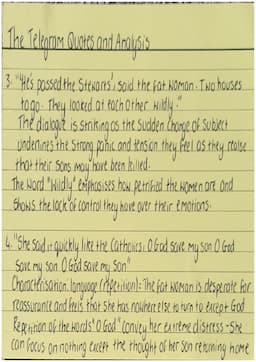 The Telegram Quotes and Analysis
3. "He's passed the Stewarts' said the fat woman. Two houses
to go. They looked at each other wildly."
The dialogue is striking as the sudden change of subject
underlines the strong panic and tension they feel as they realise
that their sons may have been killed.
The word "wildly" emphasises how petrified the women are and
shows the lack of control they have over their emotions.
4. "She said it quickly like the Catholics: O God save my son O God
save my son O God save my son"
Characterisation, language (repetition): The fat woman is desperate for
reassurance and feels that she has nowhere else to turn to except God
Repetition of the words "O God" convey her extreme distress - She
can focus on nothing except the thought of her son returning home